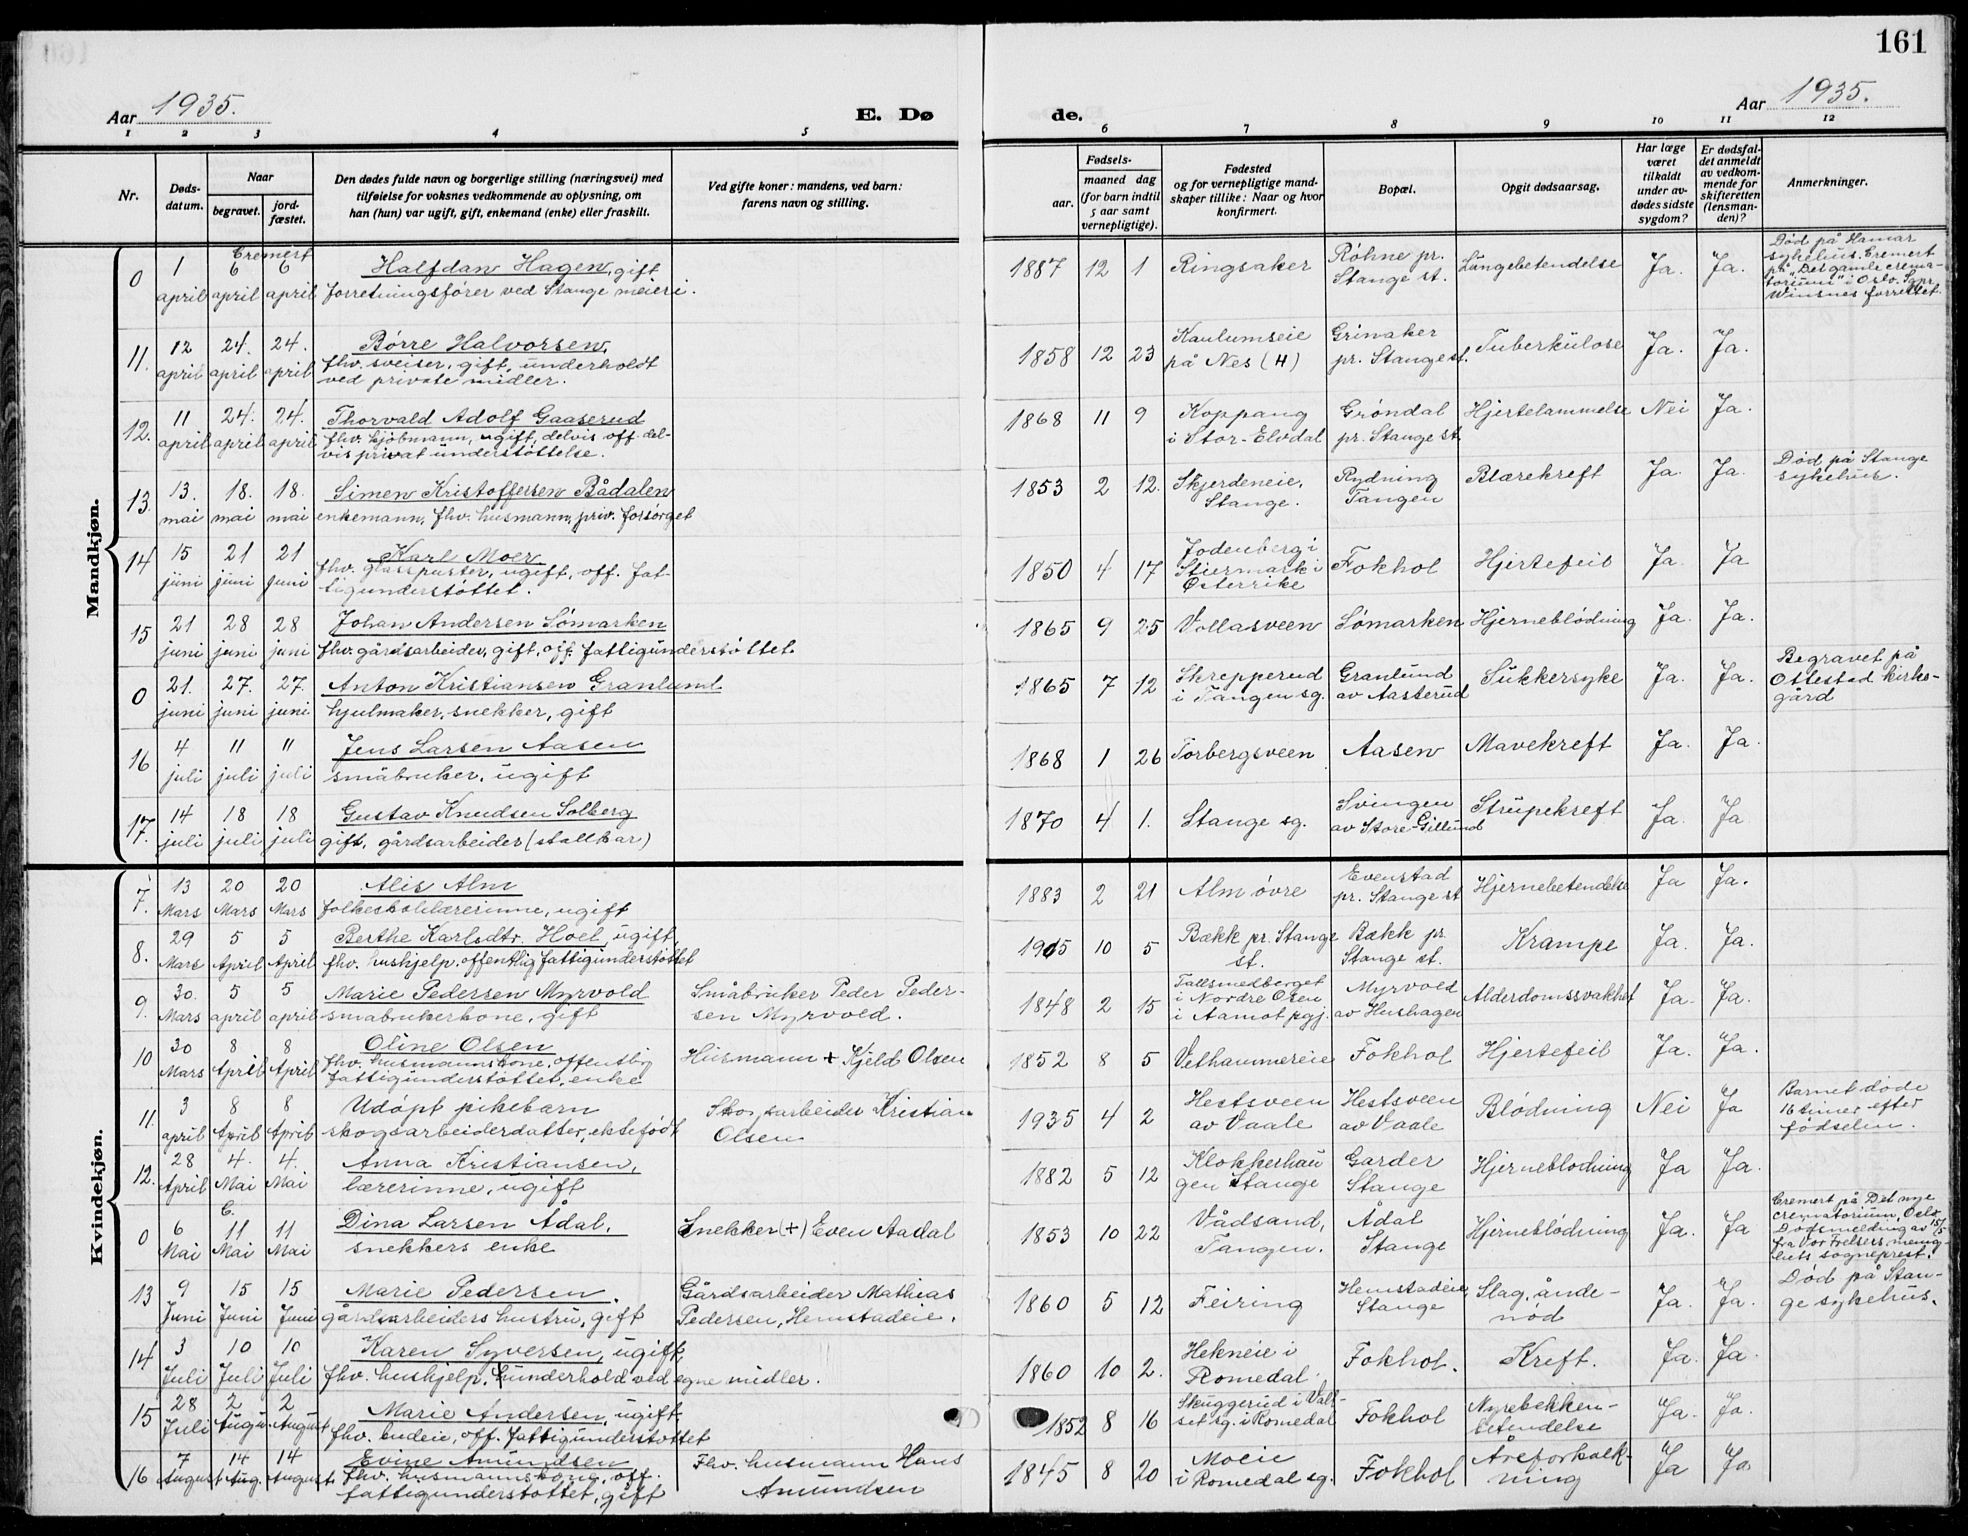 161
Aar 1935.
E. Dø
de.
Aar 1935.
1 2 3 4 5 6 7 8 9 10 11 12
Nr.
Døds-
datum.
Naar
begravet.
jord-
fæstet.
Den dødes fulde navn og borgerlige stilling (næringsvei) med
tilføielse for voksnes vedkommende av oplysning, om
han (hun) var ugift, gift, enkemand (enke) eller fraskilt.
Ved gifte koner: mandens, ved barn:
farens navn og stilling.
Fødsels-
aar.
maaned dag
(for barn indtil
5 aar samt
vernepligtige).
Fødested
og for vernepligtige mand-
skaper tillike: Naar og hvor
konfirmert.
Bopæl.
Opgit dødsaarsag.
Har læge
været
tilkaldt
under av-
dødes sidste
sygdom?
Er dødsfal-
det anmeldt
av vedkom-
mende for
skifteretten
(lensman-
den)?
Anmerkninger.
Mandkjøn.
0
1 april
Cremert
6 april
6 april
Halfdan Hagen, gift
forretningsfører ved Stange meieri.
1887 12 1
Ringsaker
Røhne pr.
Stange st.
Lungebetendelse
Ja. Ja.
Død på Hamar
sykehus. Cremert
på "Det gamle crema-
torium" i Oslo. Sgpr.
Winsnes forrettet.
11.
12 april
24. april
24. april
Børre Halvorsen,
fhv. sveiser, gift, underholdt
ved private midler.
1858 12 23
Kaulumseie
på Nes (H)
Grinaker
pr. Stange st.
Tuberkulose
Ja. Ja.
12.
11 april
24. april
24. april
Thorvald Adolf Gaaserud
fhv. kjøbmann, ugift, delvis off. del-
vis privat understøttelse.
1868 11 9
Koppang
i Stor-Elvdal
Grøndal
pr. Stange st.
Hjertelammelse
Nei Ja.
13.
13. mai
18. mai
18. mai
Simen Kristoffersen Bådalen
enkemann, fhv. husmann, priv. forsørget
1853 2 12.
Skjerdeneie,
Stange.
Rydning
Tangen
Blærekreft
Ja. Ja.
Død på Stange
sykehus.
14
15 juni
21 juni
21 juni
Karl Moer
fhv. glasspuster, ugift, off. fat-
tigunderstøttet.
1850 4 17
Jodenberg i
Stiermark i
Østerrike
Fokhol
Hjertefeil
Ja. Ja
15
21 juni
28 juni
28 juni
Johan Andersen Sømarken
fhv. gårdsarbeider, gift, off. fattigunderstøttet.
1865 9 25
Vollasveen
Sømarken
Hjerneblødning
Ja. Ja.
0
21. juni
27. juni
27. juni
Anton Kristiansen Granlund
hjulmaker, snekker, gift
1865 7 12
Skrepperud
i Tangen sg.
Granlund
av Aasterud
Sukkersyke
Ja. Ja.
Begravet på
Ottestad kirke-
gård
16
4 juli
11 juli
11 juli
Jens Larsen Aasen
småbruker, ugift
1868 1 26
Torbergsveen
Aasen
Mavekreft
Ja. Ja.
17.
14 juli
18 juli
18 juli
Gustav Knudsen Solberg
gift, gårdsarbeider (stallkar)
1870 4 1.
Stange sg.
Svingen
av Store-Gillund
Strupekreft
Ja. Ja
Kvindekjøn.
7.
13 Mars
20 Mars
20 Mars
Alis Alm
folkeskolelærerinne, ugift
1883 2 21
Alm øvre
Evenstad
pr. Stange st
Hjernebetendelse
Ja Ja.
8.
29 Mars
5 April
5 April
Berthe Karlsdtr. Hoel, ugift,
fhv. hushjelp. offentlig fattigunderstøttet
1905 10 5
Bækk pr. Stange
st.
Bækk pr.
Stange st.
Krampe
Ja. Ja.
9.
30. Mars
5 april
5 april
Marie Pedersen Myrvold
småbrukerkone, gift
Småbruker Peder Peder-
sen Myrvold.
1848 2 15
Tallsmedberget
i Nordre Osen
i Aamot pgj.
Myrvold
av Hushagen
Alderdomssvakhet
Ja. Ja.
10
30 Mars
8 April
8 April
Oline Olsen
fhv. husmannskone, offentlig
fattigunderstøttet, enke
Husmann + Kjeld Olsen
1852 8 5
Velhammereie
Fokhol
Hjertefeil
Ja. Ja.
11.
3 april
8 April
8 April
Udøpt pikebarn
skogsarbeiderdatter, ektefødt
Skogsarbeider Kristian
Olsen
1935 4 2
Hestsveen
av Vaale
Hestsveen
av Vaale
Blødning
Nei Ja
Barnet døde
16 timer efter
fødselen.
12.
28 April
4. Mai
4. Mai
Anna Kristiansen,
lærerinne, ugift
1882 5 12
Klokkerhau
gen Stange
Garder
Stange
Hjerneblødning
Ja Ja.
0
6 Mai
C.
11 Mai
11 Mai
Dina Larsen Ådal,
snekkers enke
Snekker (+) Even Aadal
1853 10 22
Vådsand,
Tangen.
Ådal
Stange
Hjerneblødning
Ja. Ja
Cremert på Det nye
crematorium, Oslo.
Dødsmelding av 15/5
fra Vor Frelsers menig-
hets sogneprest.
13
9 Juni
15 Juni
15 Juni
Marie Pedersen.
gårdsarbeiders hustru, gift
Gårdsarbeider Mathias
Pedersen, Hemstadeie.
1860 5 12
Feiring
Hemstadeie,
Stange
Slag, ånde-
nød
Ja. Ja.
Død på Stan-
ge sykehus.
14
3 Juli
10 Juli
10 Juli
Karen Syversen, ugift,
fhv. hushjelp, underhold ved egne midler.
1860 10 2.
Hekneie i
Romedal.
Fokhol.
Kreft.
Ja. Ja.
15
28 Juli
2 Augu.
2 August
Marie Andersen, ugift
fhv. budeie, off. fattigunderstøttet
1852 8 16
Skuggerud i Vall-
set sg. i Romedal
Fokhol
Nyrebekken-
betendelse
Ja. Ja.
16
7 August
14 Aug.
14 August.
Evine Amundsen
fhv. husmannskone, off.
fattigunderstøttet, gift
Fhv. husmann Hans
Amundsen
1845 8 20
Moeie
i Romedal sg.
Fokhol
Åreforkalk-
ning
Ja Ja